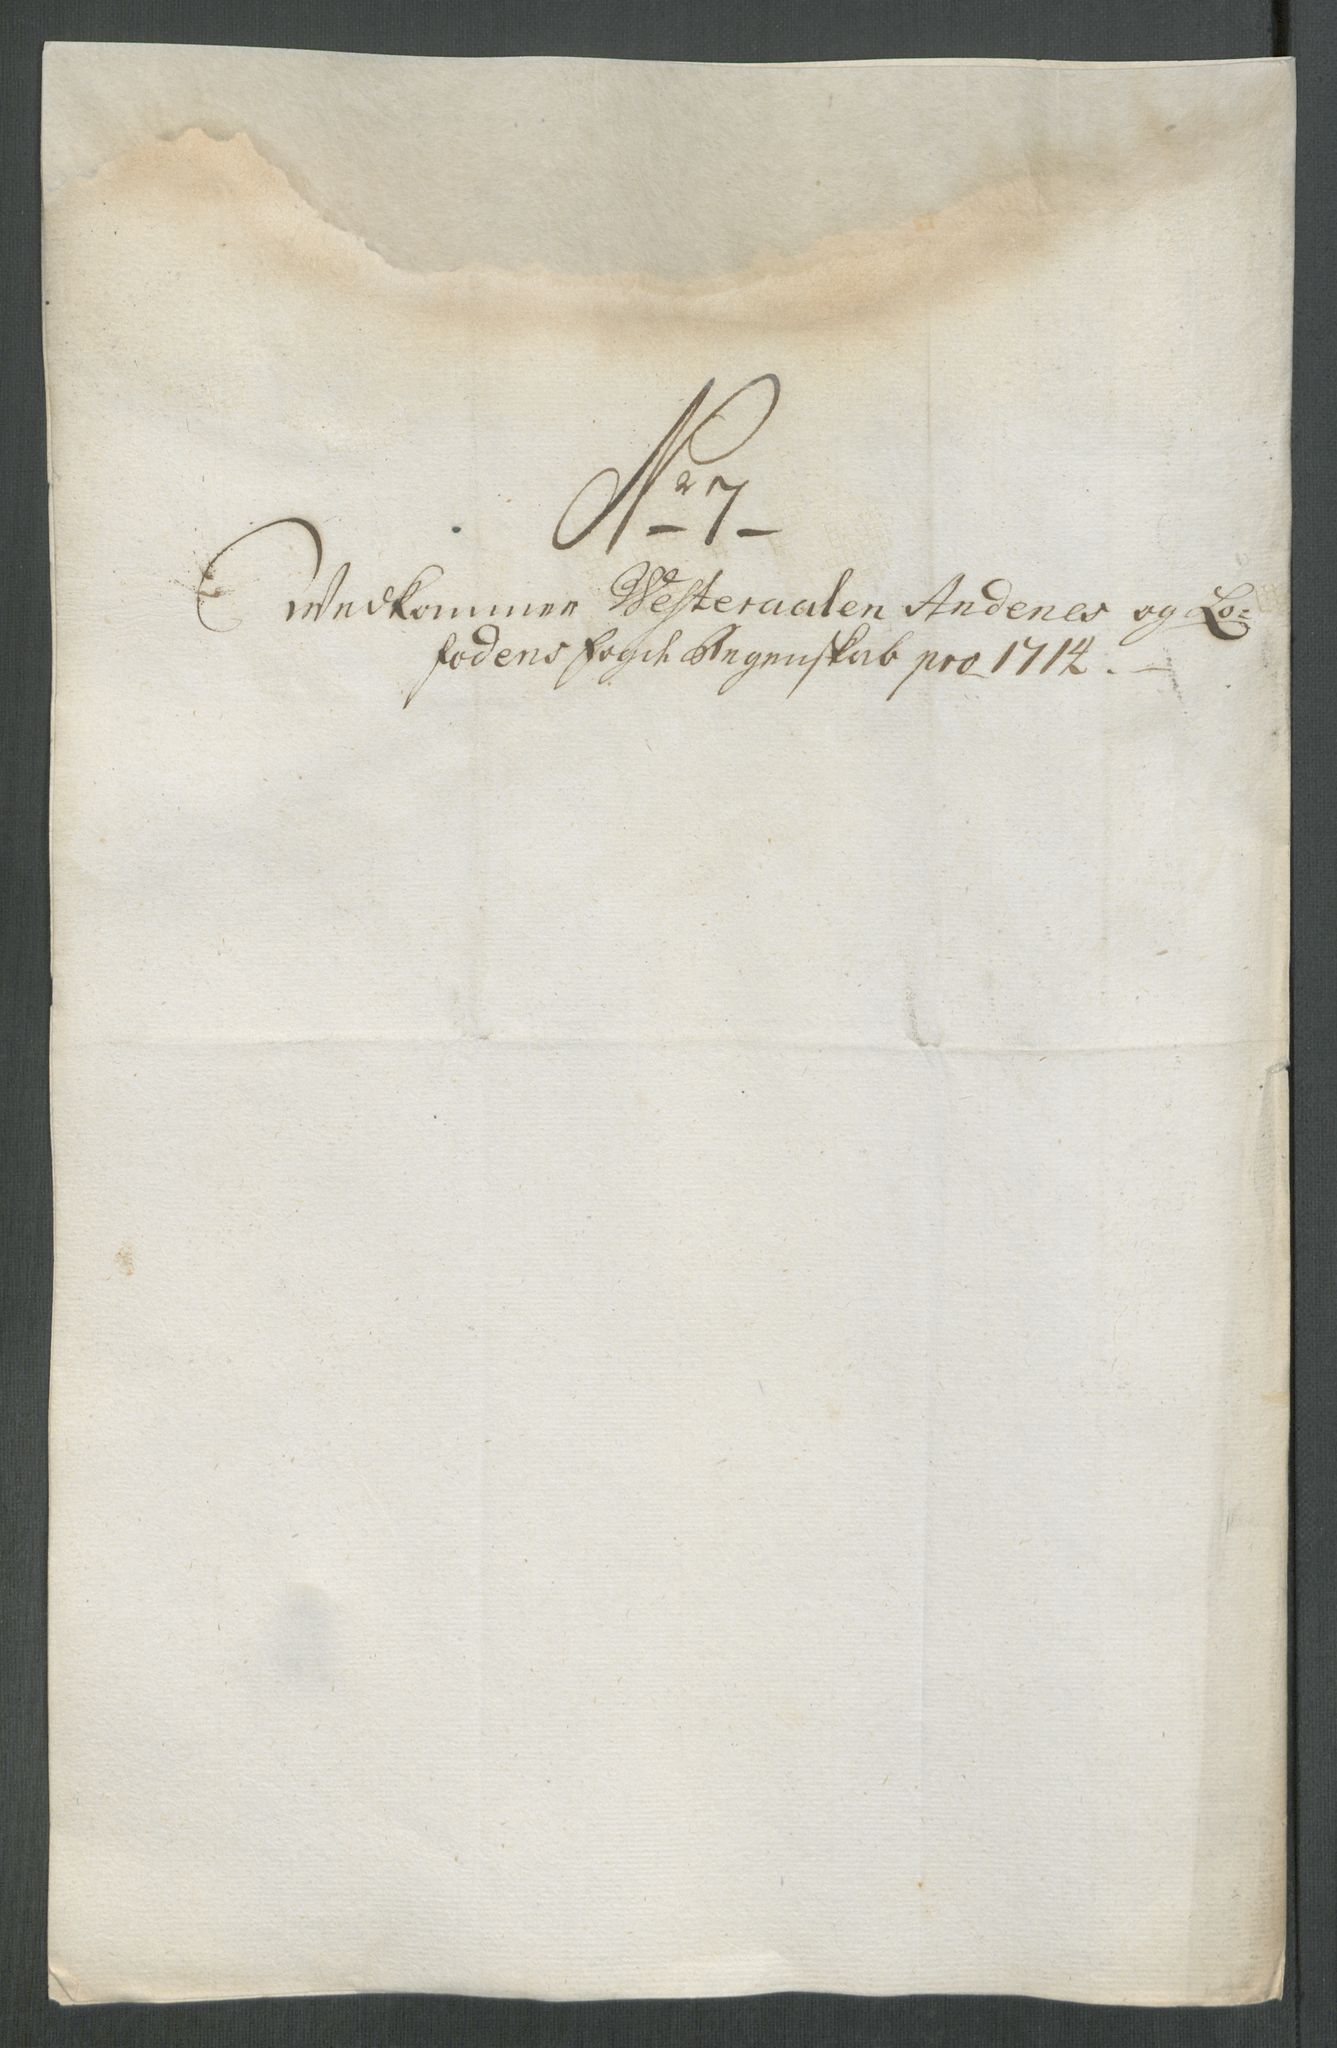 Nr 7
Vedkommer Westeraalen Andenes og Lo=
fodens fogd. Regenskab pro 1714.